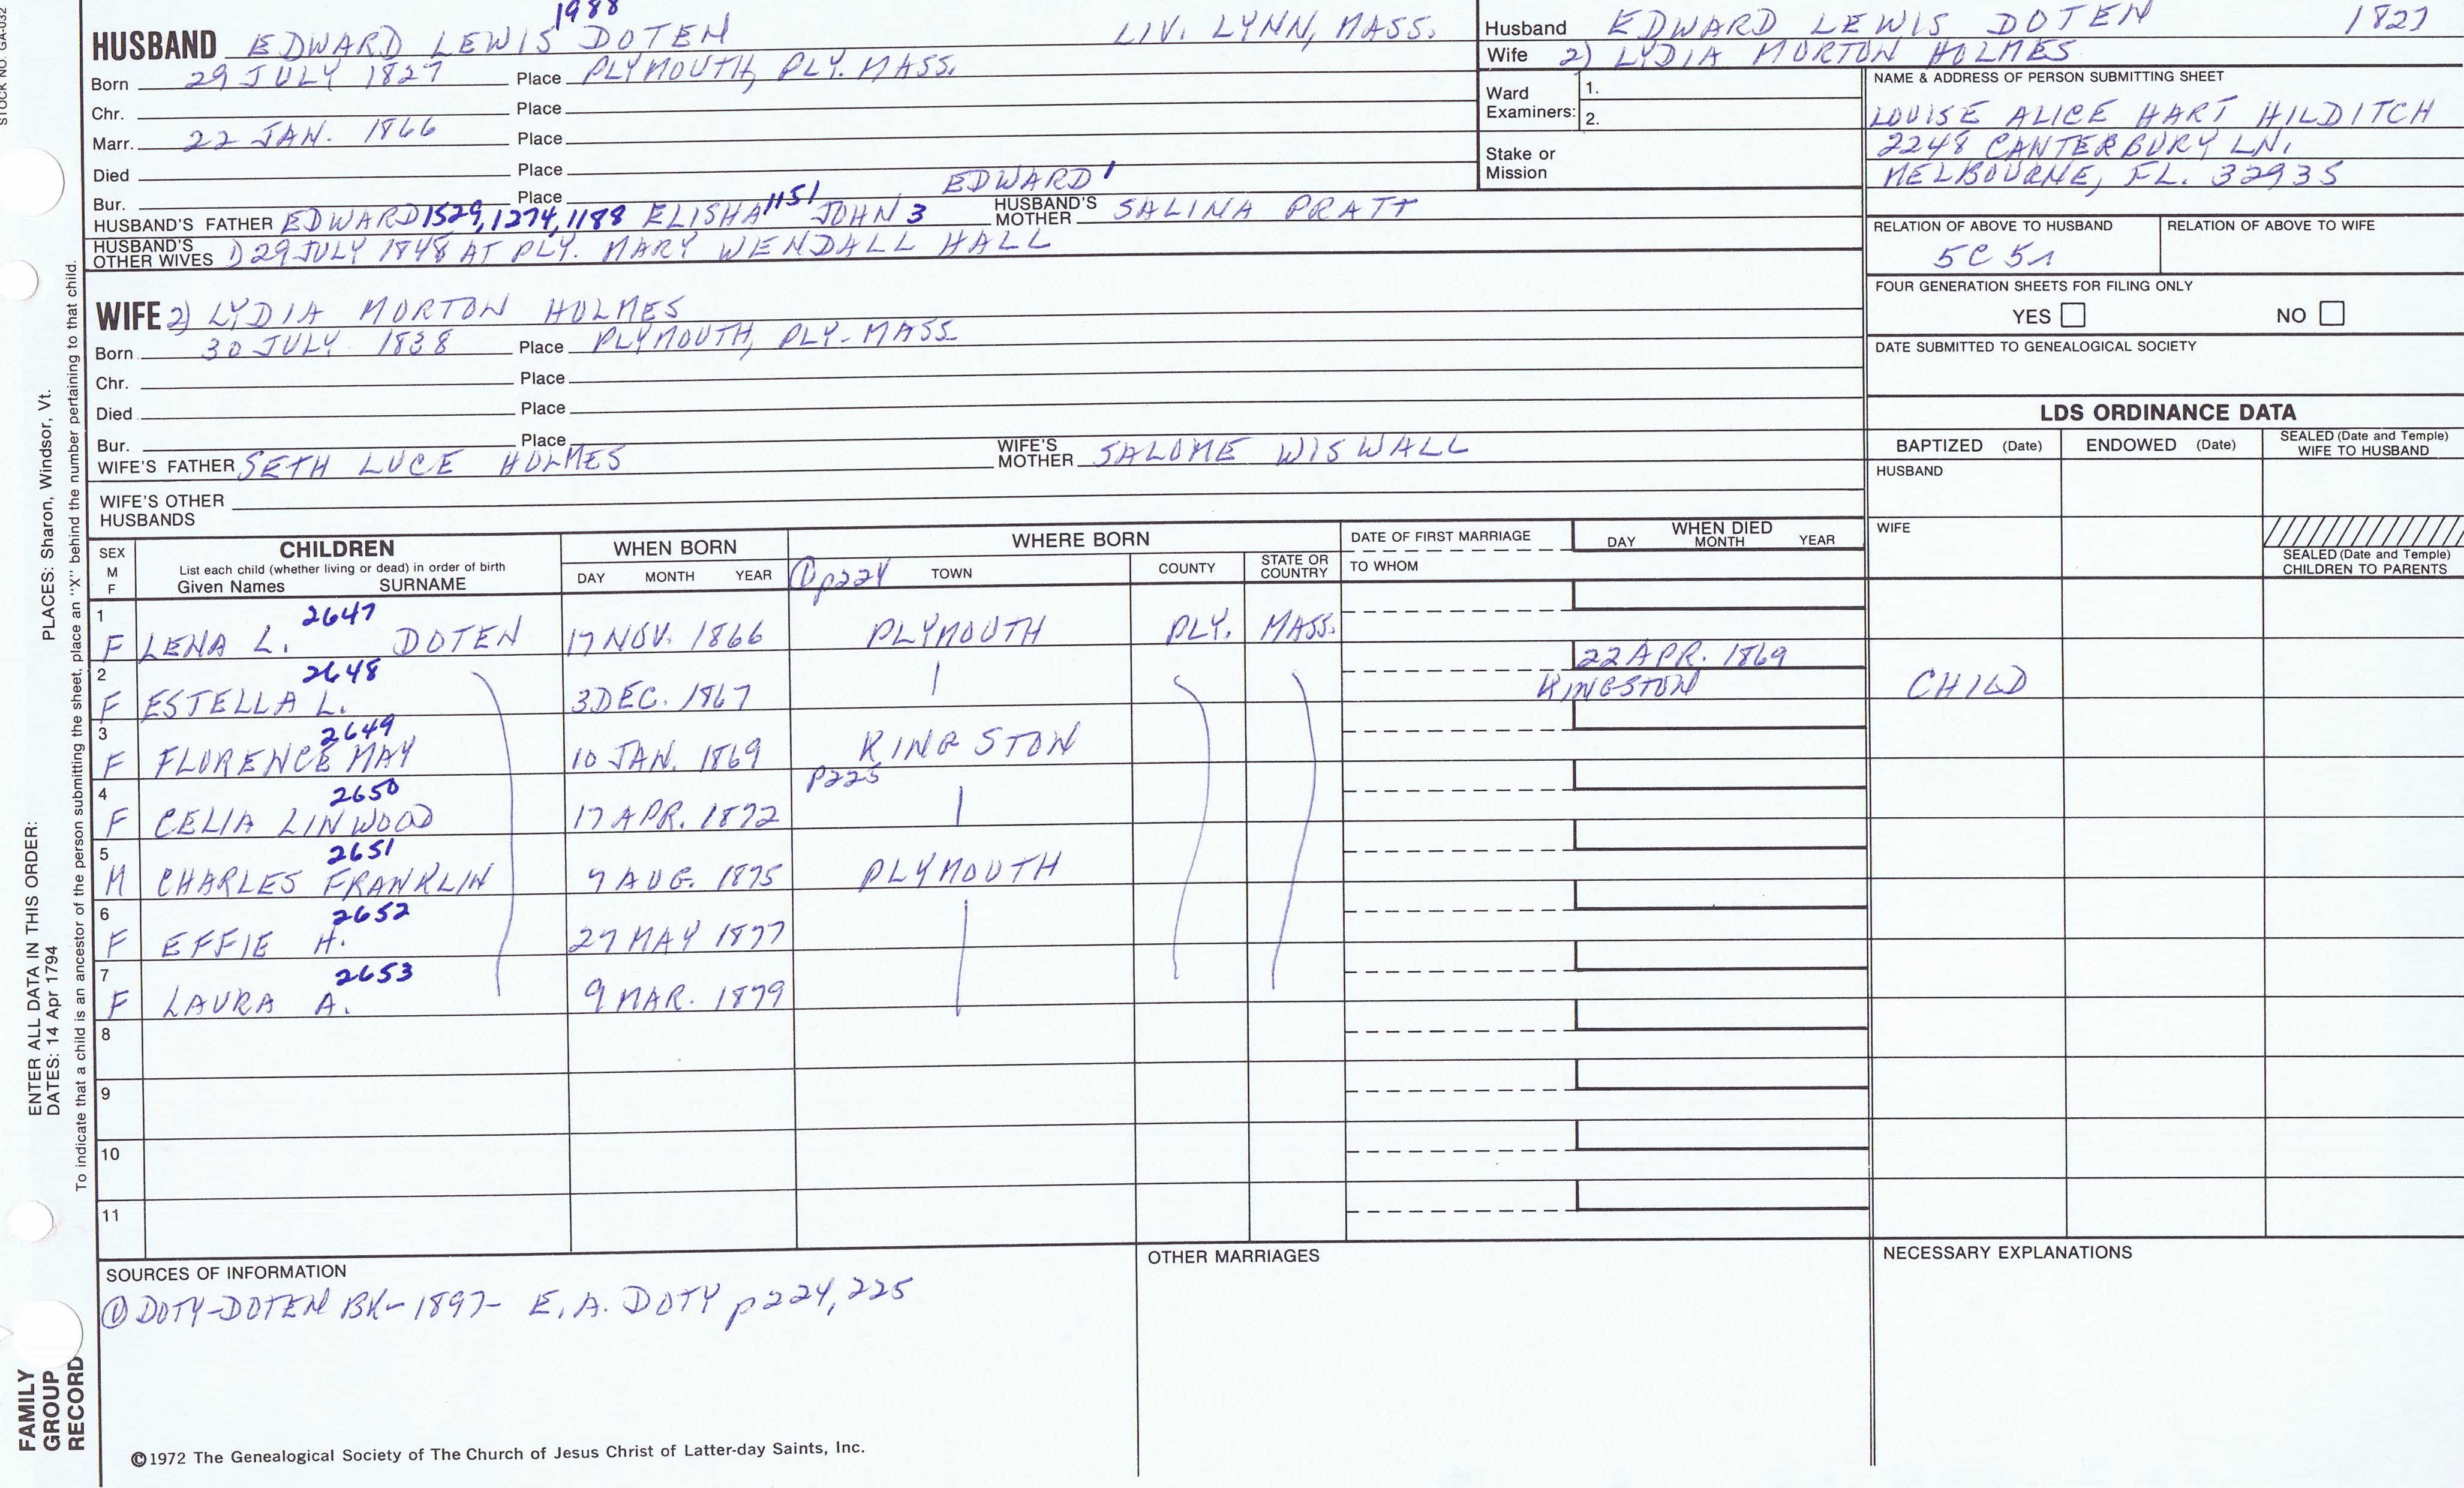 STOCK NO. GA-032
1988
HUSBAND EDWARD LEWIS DOTEN LIV. LYNN, MASS.
Born 29 JULY 1827 Place PLYMOUTH, PLY. MASS.
Chr. Place
Marr. 22 JAN. 1866 Place
Died Place
Bur. Place EDWARD 1
HUSBAND'S FATHER EDWARD 1529, 1274, 1188 ELISHA 1151 JOHN 3 HUSBAND'S MOTHER SALINA PRATT
HUSBAND'S OTHER WIVES 1) 29 JULY 1848 AT PLY. MARY WENDALL HALL
WIFE 2) LYDIA MORTON HOLMES
Born 30 JULY 1838 Place PLYMOUTH, PLY. MASS.
Chr. Place
Died Place
Bur. Place
WIFE'S FATHER SETH LUCE HOLMES WIFE'S MOTHER SALOME WISWALL
WIFE'S OTHER HUSBANDS
Husband EDWARD LEWIS DOTEN 1827
Wife 2) LYDIA MORTON HOLMES
Ward Examiners: 1.
2.
Stake or Mission
NAME & ADDRESS OF PERSON SUBMITTING SHEET
LOUISE ALICE HART HILDITCH
2248 CANTERBURY LN.
MELBOURNE, FL. 32935
RELATION OF ABOVE TO HUSBAND RELATION OF ABOVE TO WIFE
5C 5r
FOUR GENERATION SHEETS FOR FILING ONLY
YES NO
DATE SUBMITTED TO GENEALOGICAL SOCIETY
LDS ORDINANCE DATA
BAPTIZED (Date) ENDOWED (Date) SEALED (Date and Temple) WIFE TO HUSBAND
HUSBAND
WIFE
SEALED (Date and Temple) CHILDREN TO PARENTS
SEX M F CHILDREN WHEN BORN WHERE BORN DATE OF FIRST MARRIAGE WHEN DIED
List each child (whether living or dead) in order of birth
Given Names SURNAME DAY MONTH YEAR ① p224 TOWN COUNTY STATE OR COUNTRY TO WHOM DAY MONTH YEAR
1 2647
F LENA L. DOTEN 17 NOV. 1866 PLYMOUTH PLY. MASS.
2 2648 22 APR. 1869
F ESTELLA L. 3 DEC. 1867 KINGSTON CHILD
3 2649
F FLORENCE MAY 10 JAN. 1869 KINGSTON
4 2650 p225
F CELIA LINWOOD 17 APR. 1872
5 2651
M CHARLES FRANKLIN 7 AUG. 1875 PLYMOUTH
6 2652
F EFFIE H. 27 MAY 1877
7 2653
F LAURA A. 9 MAR. 1879
8
9
10
11
SOURCES OF INFORMATION OTHER MARRIAGES NECESSARY EXPLANATIONS
① DOTY-DOTEN BK- 1897- E. A. DOTY p224, 225
©1972 The Genealogical Society of The Church of Jesus Christ of Latter-day Saints, Inc.
ENTER ALL DATA IN THIS ORDER:
DATES: 14 Apr 1794 PLACES: Sharon, Windsor, Vt.
To indicate that a child is an ancestor of the person submitting the sheet, place an "X" behind the number pertaining to that child.
FAMILY
GROUP
RECORD